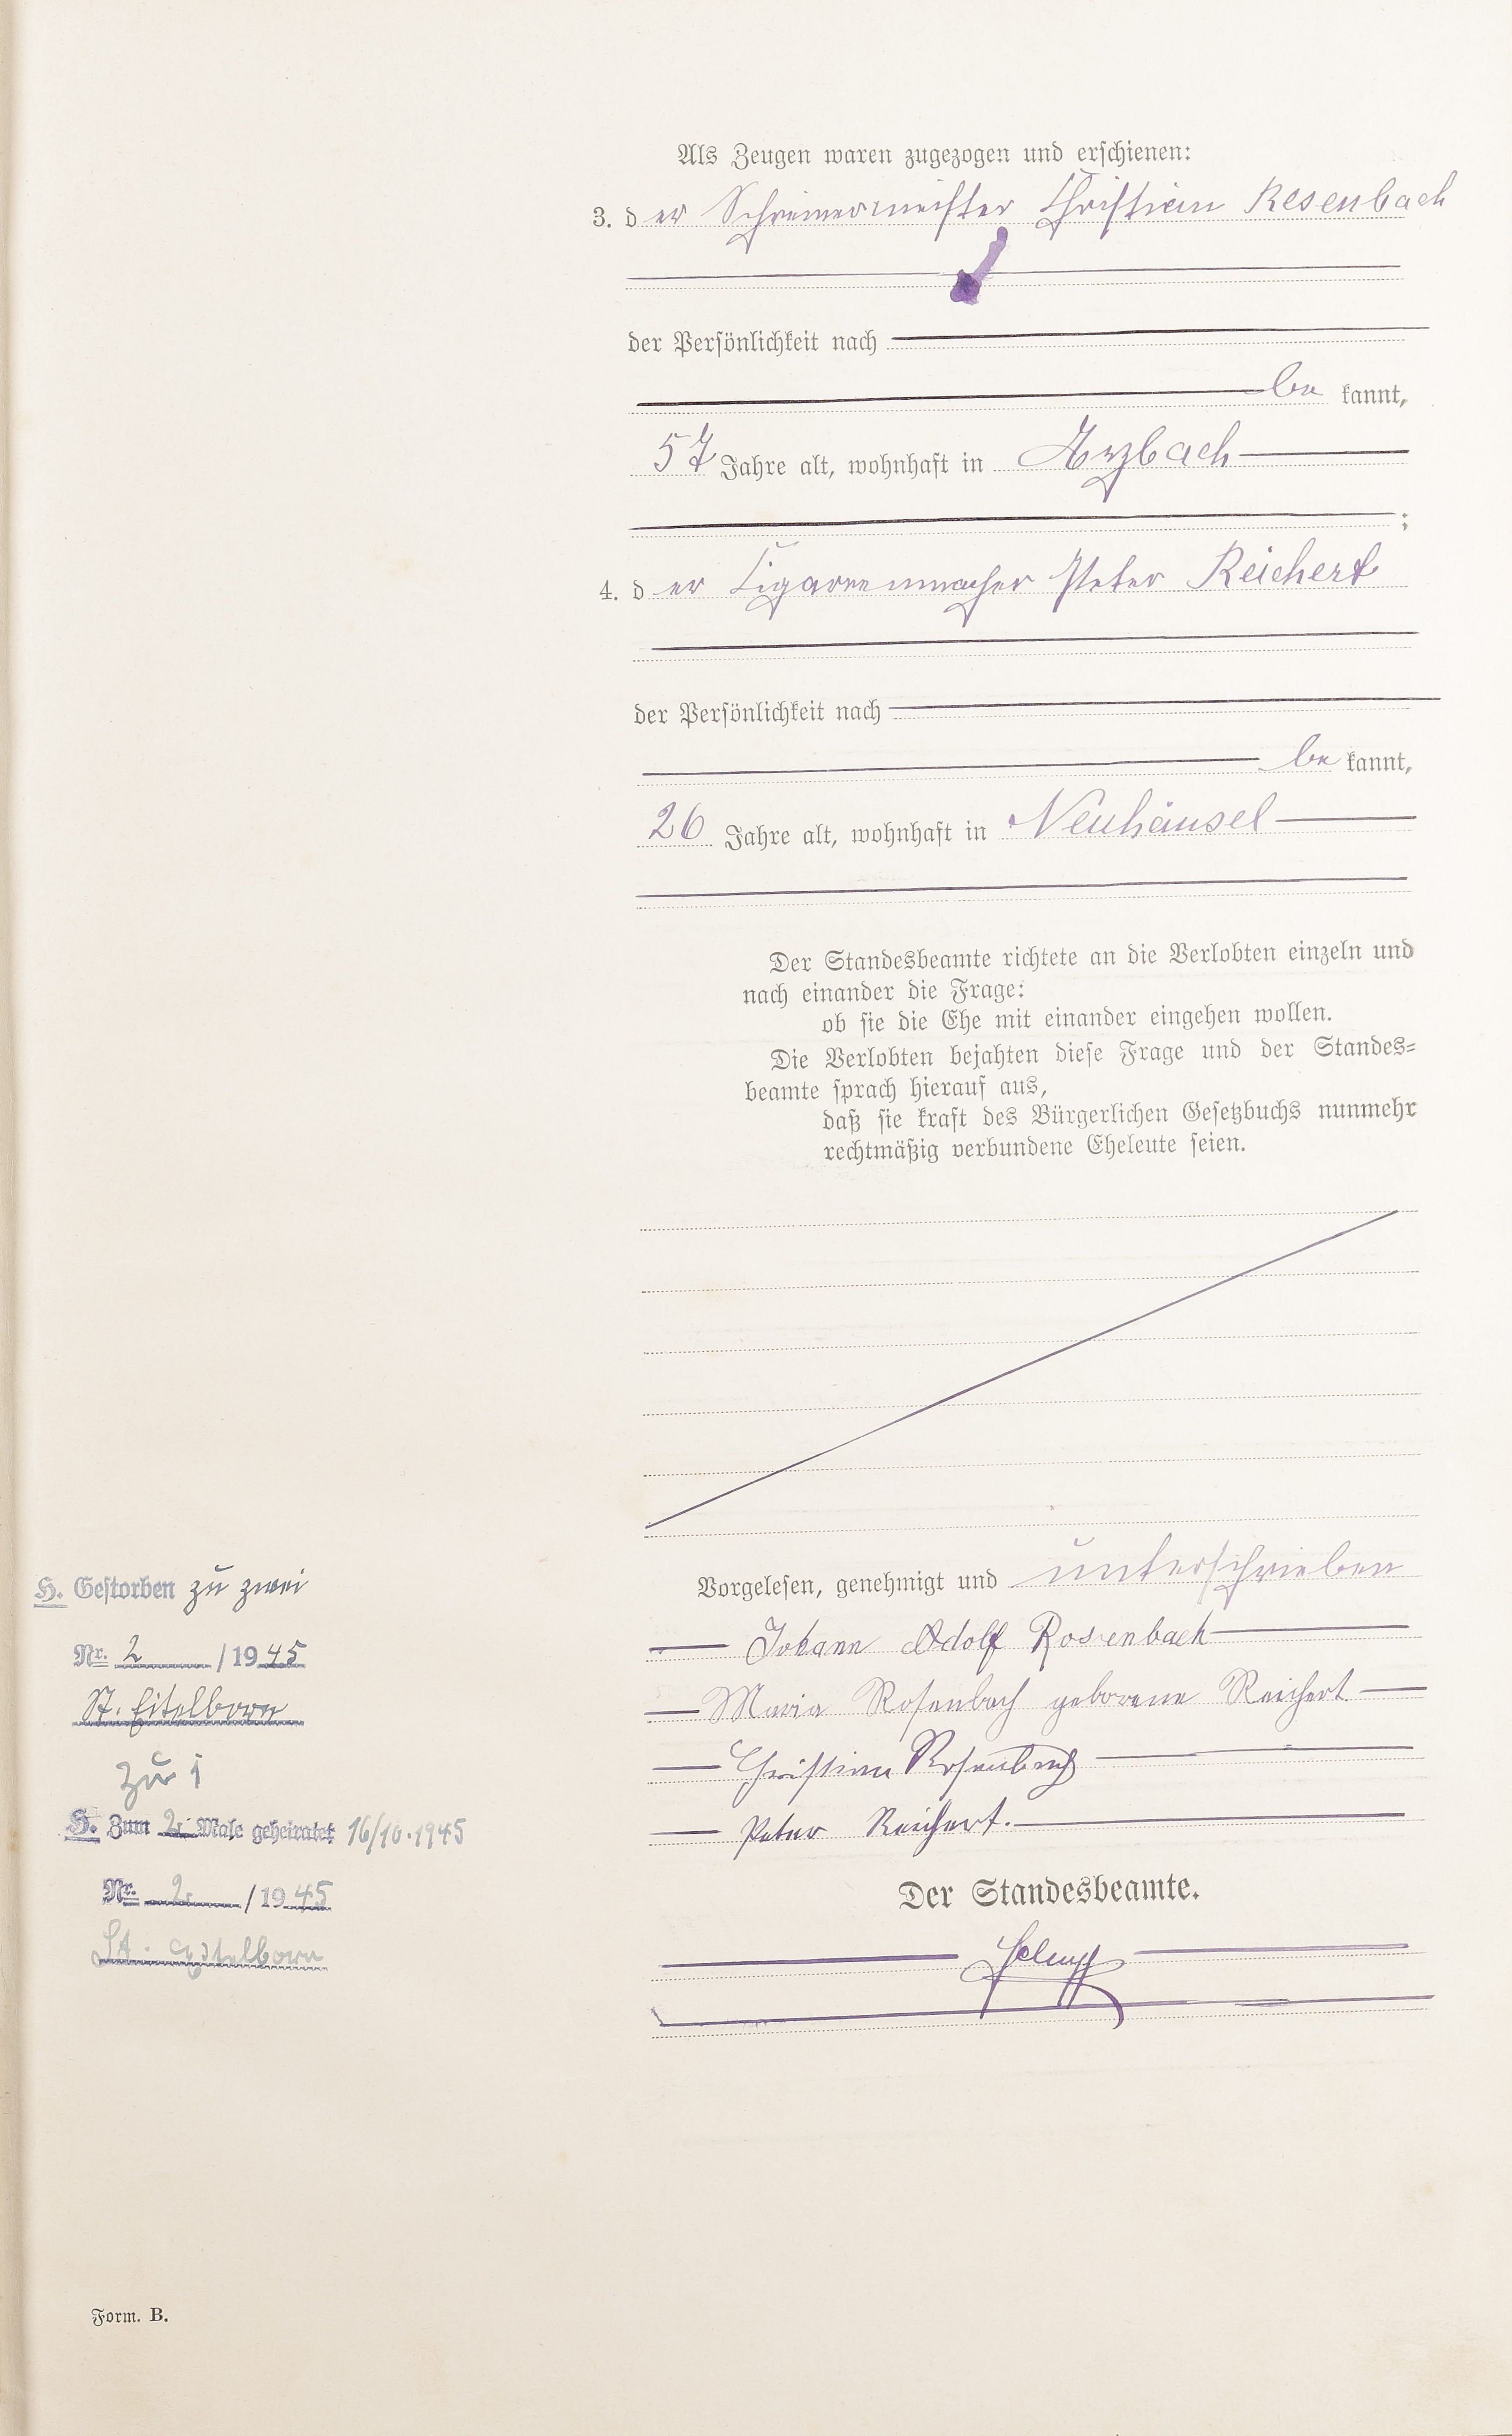 Als Zeugen waren zugezogen und erschienen:
3. der Schreinermeister Christian Rosenbach
der Persönlichkeit nach
be kannt,
57 Jahre alt, wohnhaft in Arzbach
;
4. der Cigarrenmacher Peter Reichert
der Persönlichkeit nach
be kannt,
26 Jahre alt, wohnhaft in Neuhäusel
Der Standesbeamte richtete an die Verlobten einzeln und
nach einander die Frage:
ob sie die Ehe mit einander eingehen wollen.
Die Verlobten bejahten diese Frage und der Standes=
beamte sprach hierauf aus,
daß sie kraft des Bürgerlichen Gesetzbuchs nunmehr
rechtmäßig verbundene Eheleute seien.
Vorgelesen, genehmigt und unterschrieben
Johann Adolf Rosenbach
Maria Rosenbach geborene Reichert
Christian Rosenbach
Peter Reichert.
Der Standesbeamte.
H. Gestorben zu zwei
Nr. 2 /1945
St. Eitelborn
zu 1
H. Zum 2. Male geheiratet 16/10.1945
Nr. 2. /1945
St. Eitelborn
Form. B.